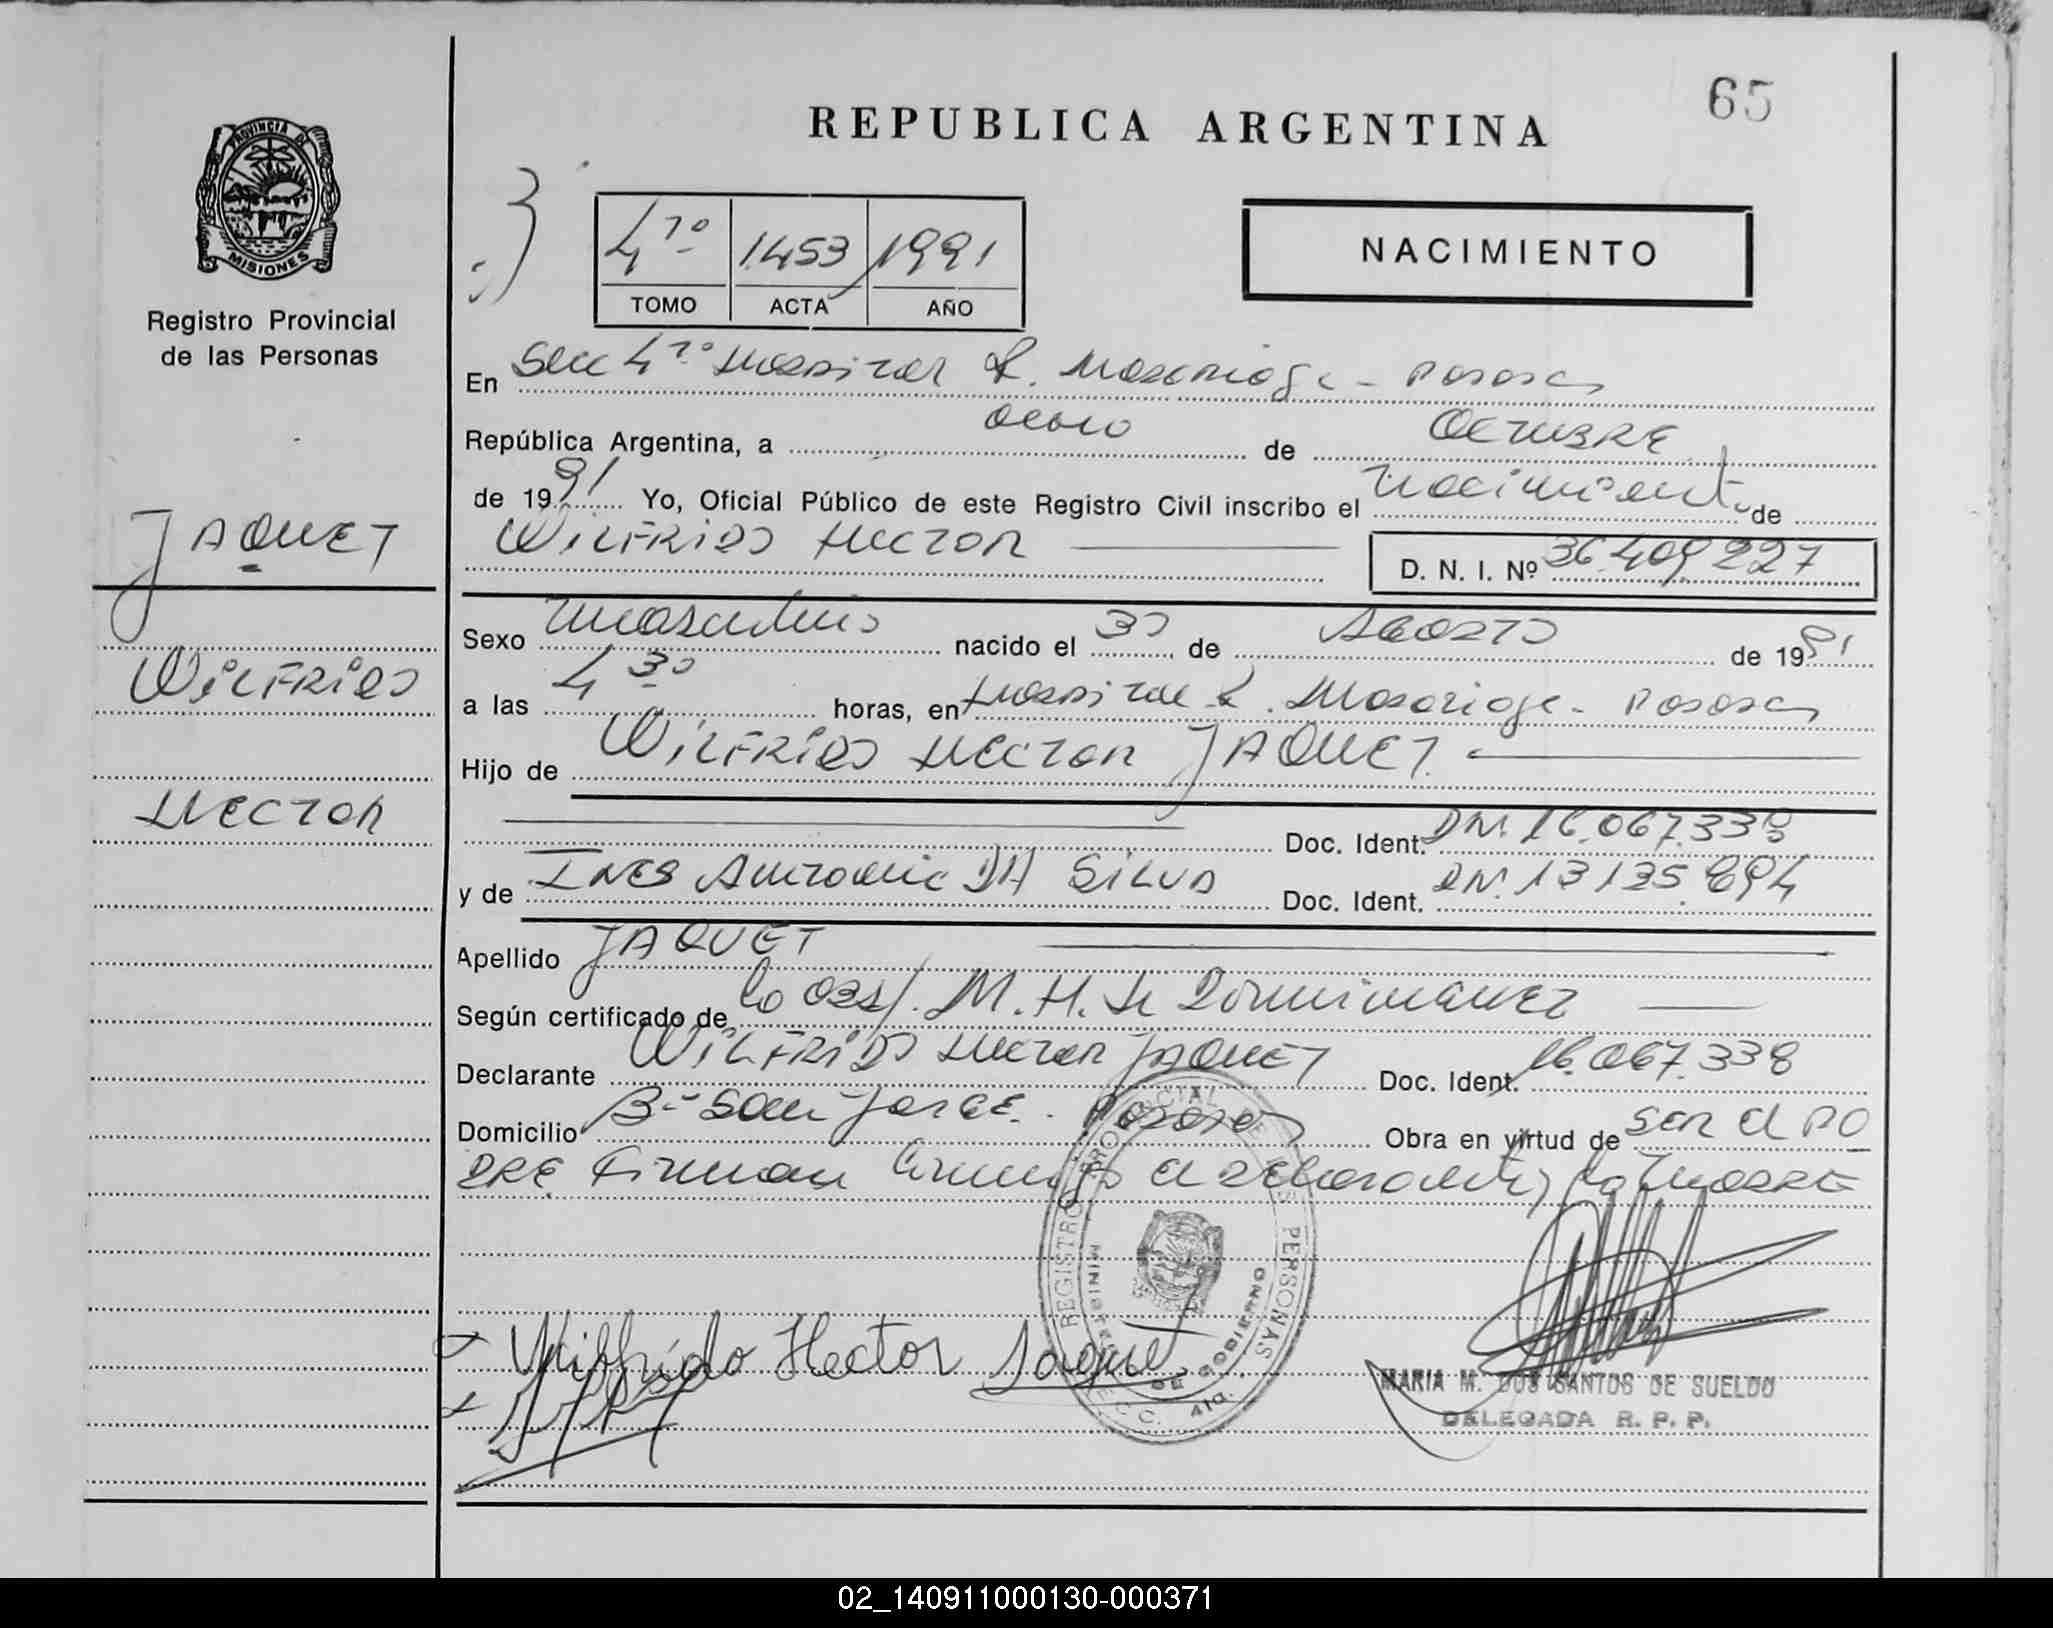 65
REPUBLICA ARGENTINA
PROVINCIA DE
MISIONES
Registro Provincial
de las Personas
4ro 1453 1991
TOMO ACTA AÑO
NACIMIENTO
En Secc 4ta Hospital R. Madariaga - Posadas
República Argentina, a ocho de OCTUBRE
de 1991 Yo, Oficial Público de este Registro Civil inscribo el Nacimiento de
WILFRIDO HECTOR D. N. I. Nº 36.409.227
JAQUET
WILFRIDO
HECTOR
Sexo masculino nacido el 30 de AGOSTO de 1991
a las 4 30 horas, en Hospital R. Madariaga - Posadas
Hijo de WILFRIDO HECTOR JAQUET.
Doc. Ident. DNI. 16.067.338
y de INES Antonia DA SILVA Doc. Ident. DNI. 13135.894
Apellido JAQUET
Según certificado de la obst. M. H. de Dominguez
Declarante WILFRIDO HECTOR JAQUET Doc. Ident. 16.067.338
Domicilio Bº San JORGE. Posadas Obra en virtud de SER el PA
DRE Firman Conmigo el declarante y la MADRE
REGISTRO PROVINCIAL DE LAS PERSONAS
MINISTERIO DE GOBIERNO
Wilfrido Hector Jaquet
MARIA M. DOS SANTOS DE SUELDO
DELEGADA R. P. P.
02_140911000130-000371